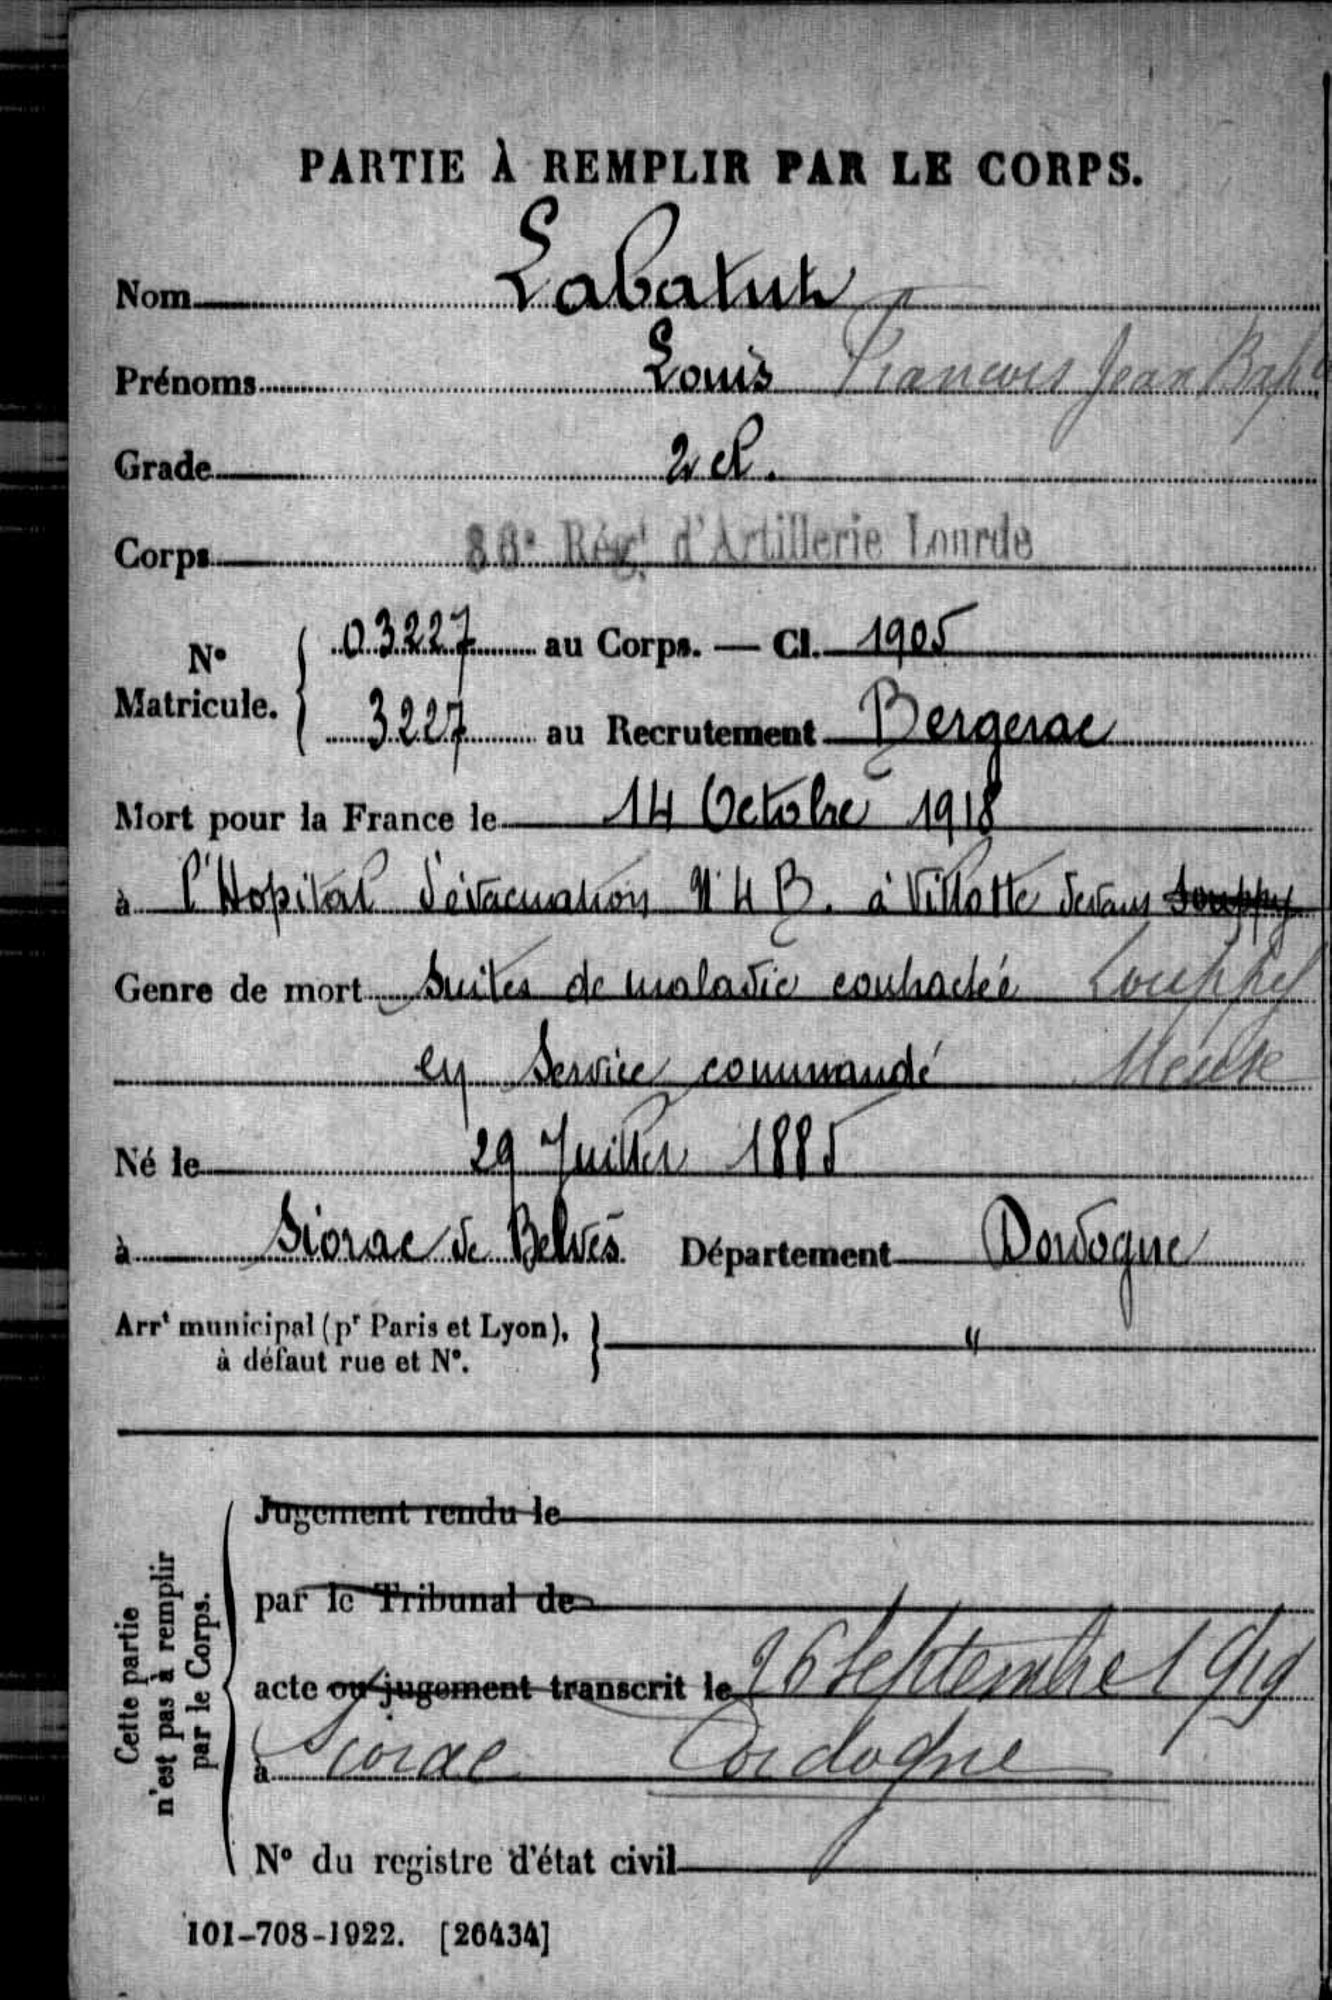 PARTIE À REMPLIR PAR LE CORPS.
Nom Labatut
Prénoms Louis François Jean Bapt
Grade 2 cl.
Corps 86e Régt d'Artillerie Lourde
No Matricule. { 03227 au Corps. — Cl. 1905
3227 au Recrutement Bergerac
Mort pour la France le 14 Octobre 1918
à l'Hopital d'évacuation No 4 B. à Villotte devant Souppy
Genre de mort Suites de maladie contractée Louppy
en Service commandé Meuse
Né le 29 Juillet 1885
à Siorac de Belvès Département Dordogne
Arrt municipal (pr Paris et Lyon), à défaut rue et No. } "
Cette partie n'est pas à remplir par le Corps.
Jugement rendu le
par le Tribunal de
acte ou jugement transcrit le 26 Septembre 1919
à Siorac Dordogne
No du registre d'état civil
101-708-1922. [26434]